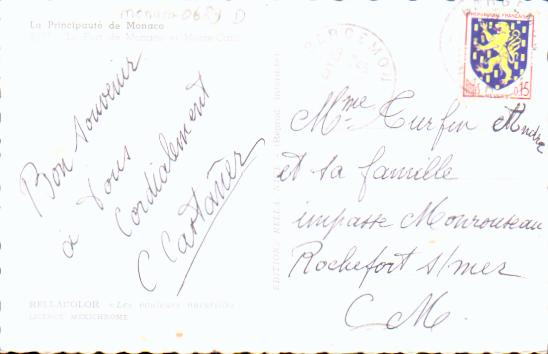 monaco 0689 D
La Principauté de Monaco
Le Port de Monaco et Monte-Carlo
Bon souvenir
à tous
Cordialement
C Castanier
BELLACOLOR « Les couleurs naturelles »
LICENCE MEXICHROME
EDITIONS BELLA
REPUBLIQUE FRANÇAISE
0,15
Mme Turfin Andre
et sa famille
impasse Monrouseau
Rochefort s/mer
C M.